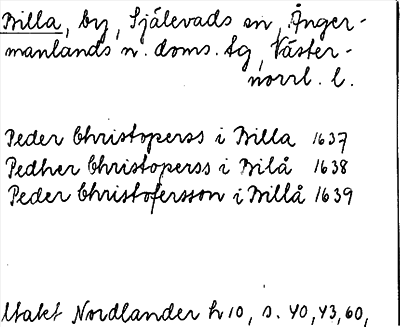 Billa, by, Själevads sn, Ånger-
manlands n. doms. tg, Väster-
norrl. l.
Peder Christoperss i Billa 1637
Pedher Christoperss i Bilå 1638
Peder Christofersson i Billå 1639
Nordlander h 10, s. 40, 43, 60,